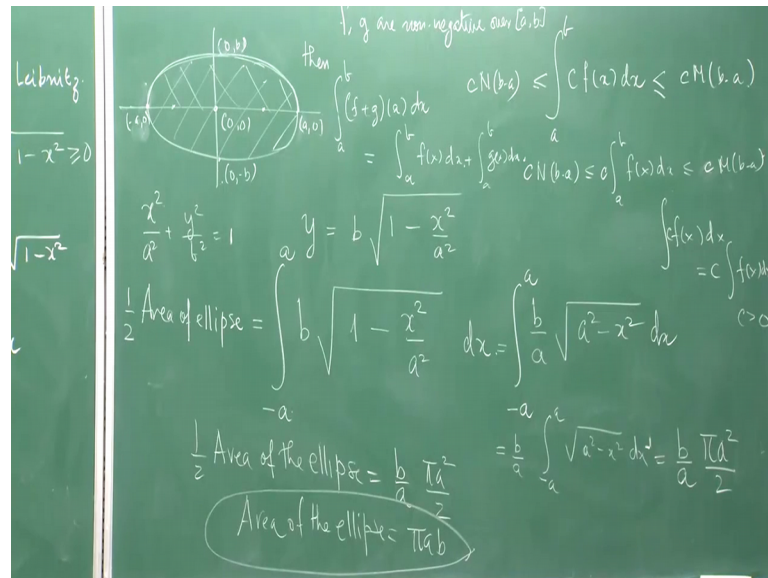 Leibnitz.
1 - x² ≥ 0
√(1 - x²)
f, g are non-negative over [a, b]
then
∫_a^b (f+g)(x) dx
= ∫_a^b f(x) dx + ∫_a^b g(x) dx.
(0, b)
(-a, 0)
(0, 0)
(a, 0)
(0, -b)
cN(b-a) ≤ ∫_a^b C f(x) dx ≤ cM(b-a)
CN(b-a) ≤ c ∫_a^b f(x) dx ≤ cM(b-a)
∫ cf(x) dx
= C ∫ f(x) dx
x²/a² + y²/b² = 1
y = b √(1 - x²/a²)
1/2 Area of ellipse = ∫_{-a}^a b √(1 - x²/a²) dx = ∫_{-a}^a b/a √(a² - x²) dx
= b/a ∫_{-a}^a √(a² - x²) dx = b/a πa²/2
1/2 Area of the ellipse = b/a πa²/2
Area of the ellipse = πab